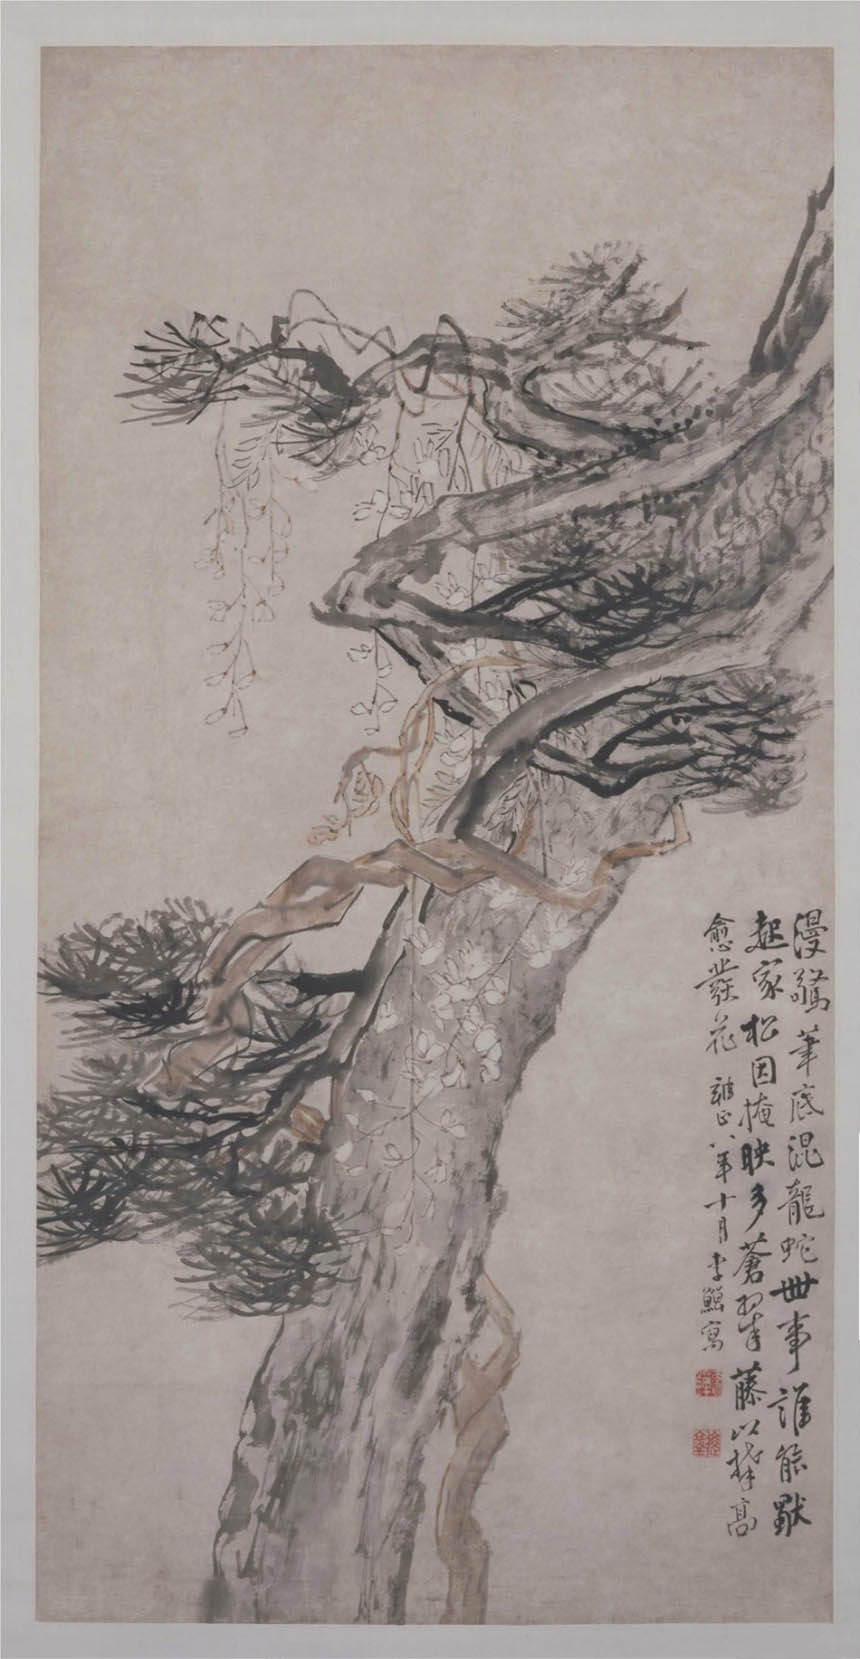 漫驚筆底混龍蛇世事誰能默
起家松因掩映多蒼翠藤以攀高
愈發花 雍正八年十月李鱓寫